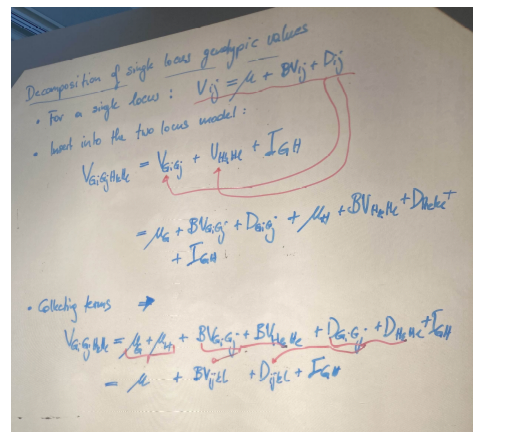 Decomposition of single locus genotypic values
• For a single locus : V_ij = μ + BV_ij + D_ij
• Insert into the two locus model :
V_GiGjHkHl = V_GiGj + V_HkHl + I_GH
= μ_G + BV_GiGj + D_GiGj + μ_H + BV_HkHl + D_HkHl +
+ I_GH
• Collecting terms ⇒
V_GiGjHkHl = μ_G + μ_H + BV_GiGj + BV_HkHl + D_GiGj + D_HkHl + I_GH
= μ + BV_ijkl + D_ijkl + I_GH